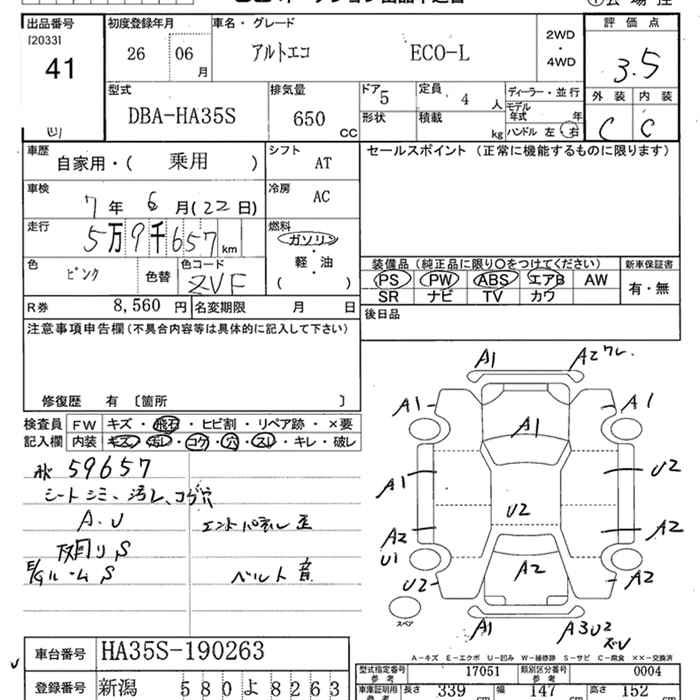 出品番号 初度登録年月 車名・グレード 評価点
[2033]
41 26 06月 アルトエコ ECO-L 2WD・4WD 3.5
外装 内装
C C
型式 排気量 ドア 定員 ディーラー・並行
DBA-HA35S 650cc 5 4人 モデル年式 年
形状 積載 kg ハンドル 左 右
車歴 シフト セールスポイント (正常に機能するものに限ります)
自家用・( 乗用 ) AT
車検 冷房
7年 6月(22日) AC
走行 燃料
5万9千657km ガソリン
軽・油
( )
色 ピンク 色替 色コード ZVF
装備品(純正品に限り○をつけてください) 新車保証書
PS PW ABS エアB AW 有・無
SR ナビ TV カワ
R券 8,560円 名変期限 月 日 後日品
注意事項申告欄(不具合内容等は具体的に記入して下さい)
修復歴 有〔箇所 〕
検査員 FW キズ・飛石・ヒビ割・リペア跡・×要
記入欄 内装 キズ・汚レ・コゲ・穴・スレ・キレ・破レ
59657
シートシミ、汚レ、コゲ穴
A.U エンドパネル歪
下回りS
E/GルームS ベルト音
A1 A2ワレ
A1 A1
A1
A1 U2
U2
A2 A2
U1
U2 A2 A2
スペア
A1 A3U2
A-キズ E-エクボ U-凹み W-補修跡 S-サビ C-腐食 ××-交換済
車台番号 HA35S-190263
型式指定番号 17051 類別区分番号 0004
参考 参考
登録番号 新潟 580よ8263
車庫証明用 長さ 339 幅 147 高さ 152